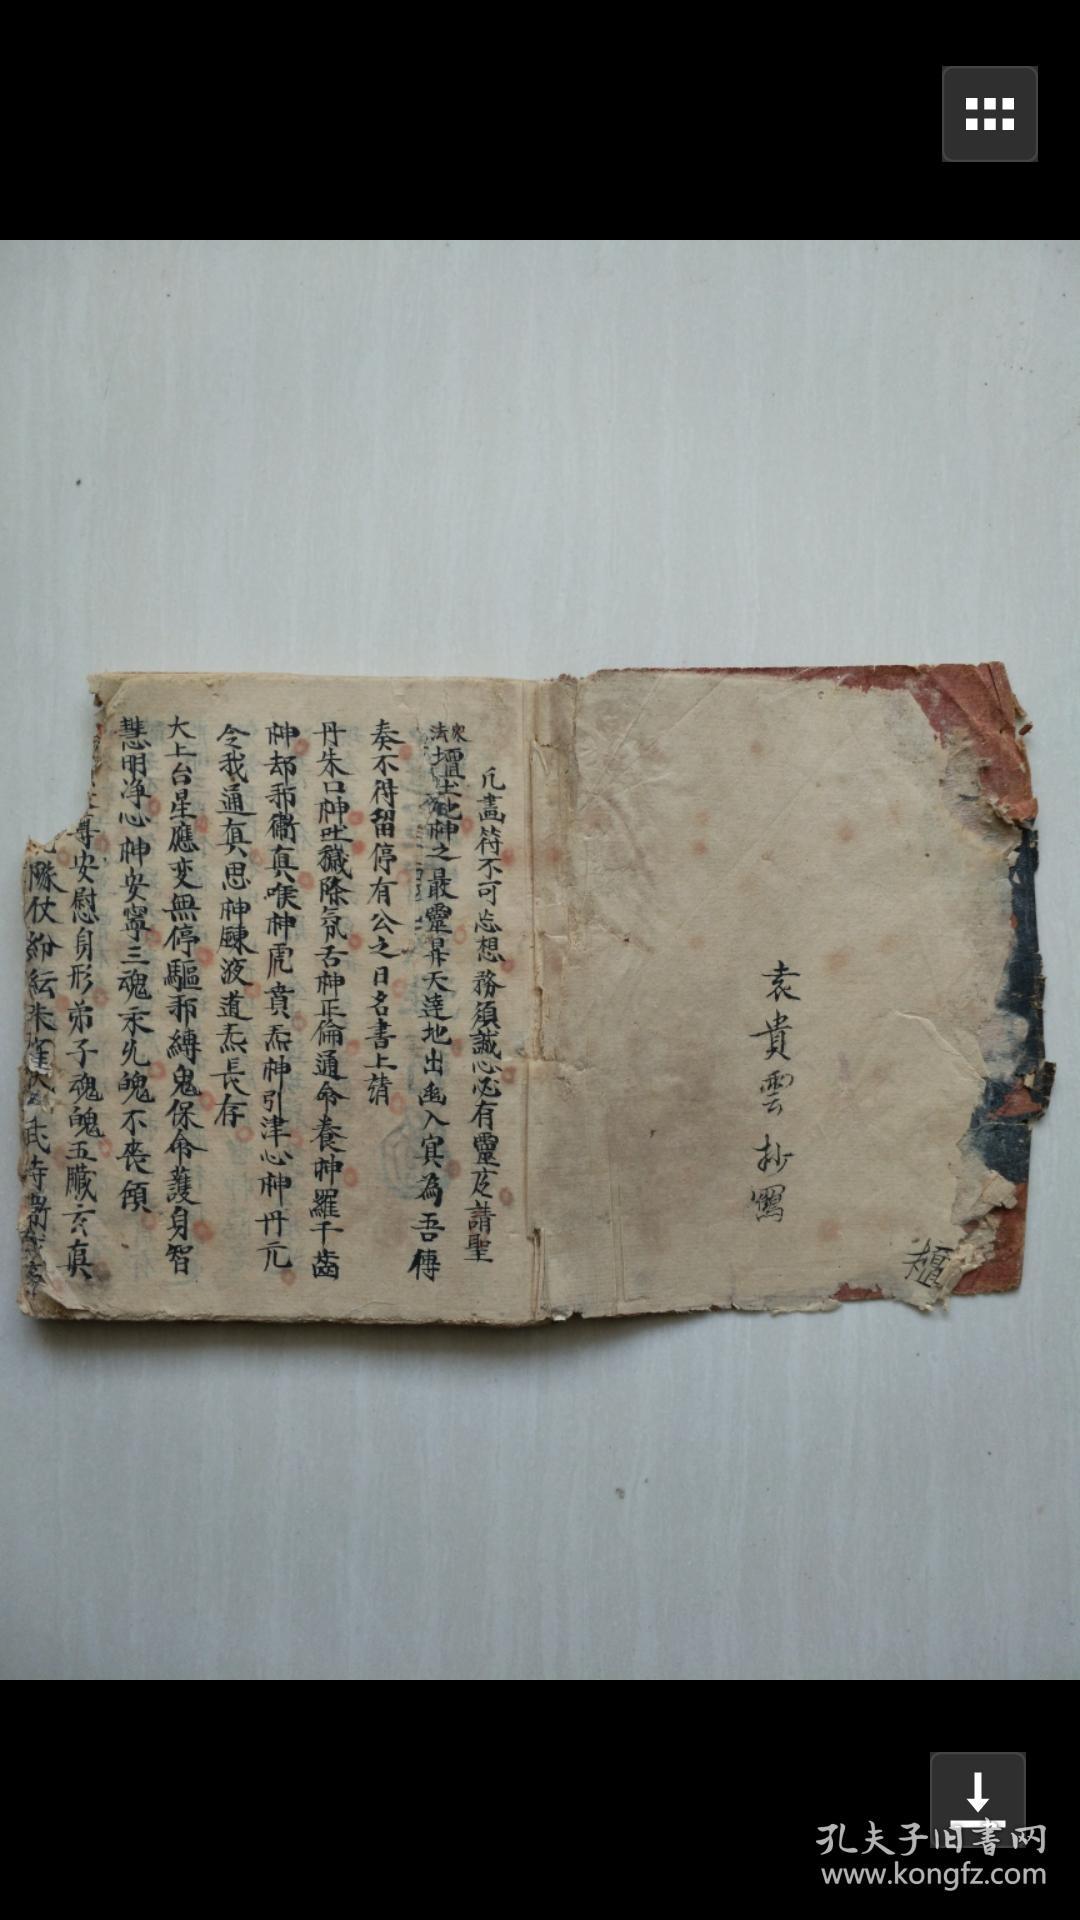 袁貴雲抄寫
凡畫符不可忘想務須誠心必有靈应請聖
衆
法壇土地神之最靈昇天達地出幽入冥為吾傳
奏不得留停有公之日名書上請
丹朱口神吐穢除氛舌神正倫通命養神羅千齒
神却邪衛真喉神虎賁炁神引津心神丹元
令我通真思神鍊液道炁長存
大上台星應变無停驅邪縛鬼保命護身智
慧明淨心神安寧三魂永久魄不丧傾
尊安慰身形弟子魂魄五臟玄真
隊仗紛紜朱雀
孔夫子旧書网
www.kongfz.com